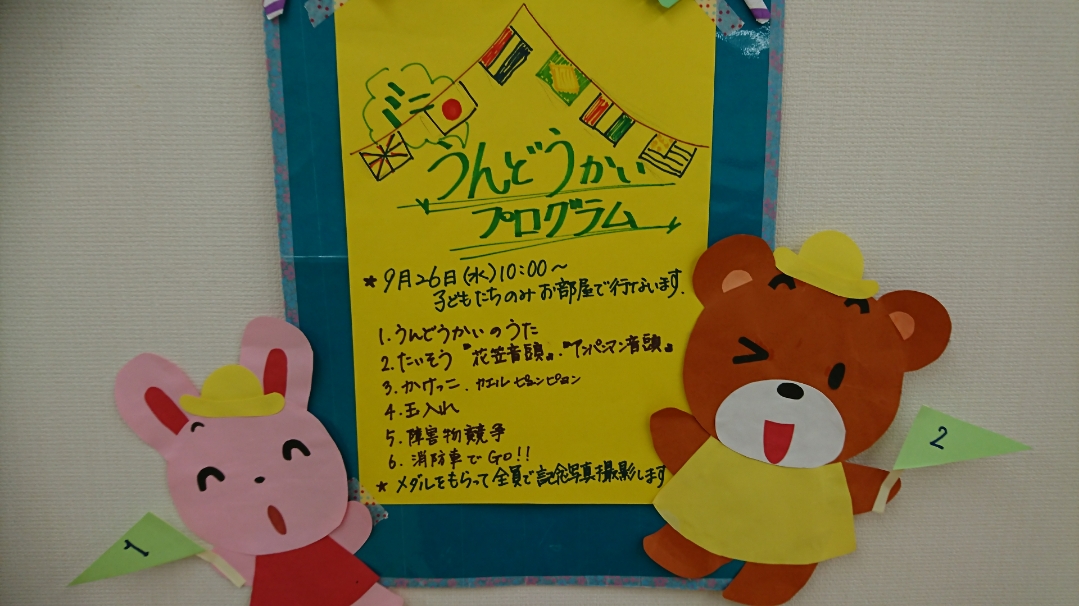 ミニ
うんどうかい
プログラム
★9月26日(水)10:00〜
子どもたちのみ お部屋で行ないます.
1.うんどうかいのうた
2.たいそう『花笠音頭』.『アンパンマン音頭』
3.かけっこ.カエルピョンピョン
4.玉入れ
5.障害物競争
6.消防車でGo!!
★メダルをもらって全員で記念写真撮影します
1
2